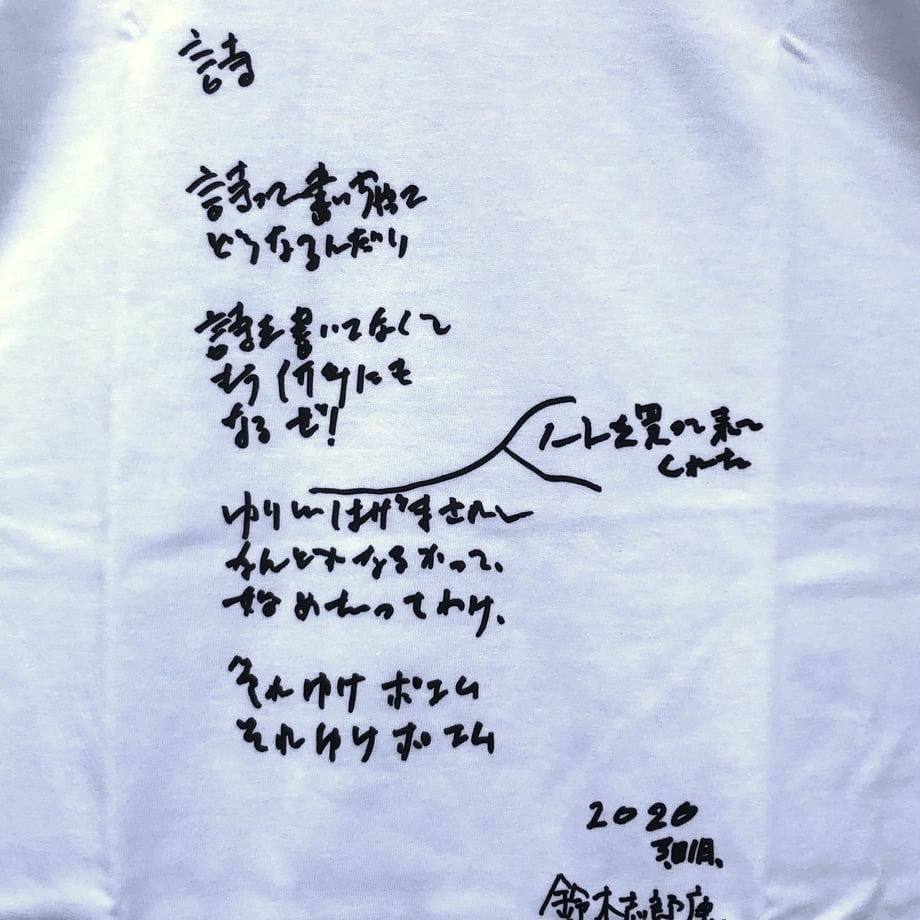 詩
詩って書いちゃって
どうなるんだい
詩を書いてなくて
もう 何にも
なるぜ!
ノートを買って来て
くれた
ゆりにはげまされて
なんとかなるかって、
始めたってわけ。
それゆけポエム
それゆけポエム
2020
鈴木志郎康